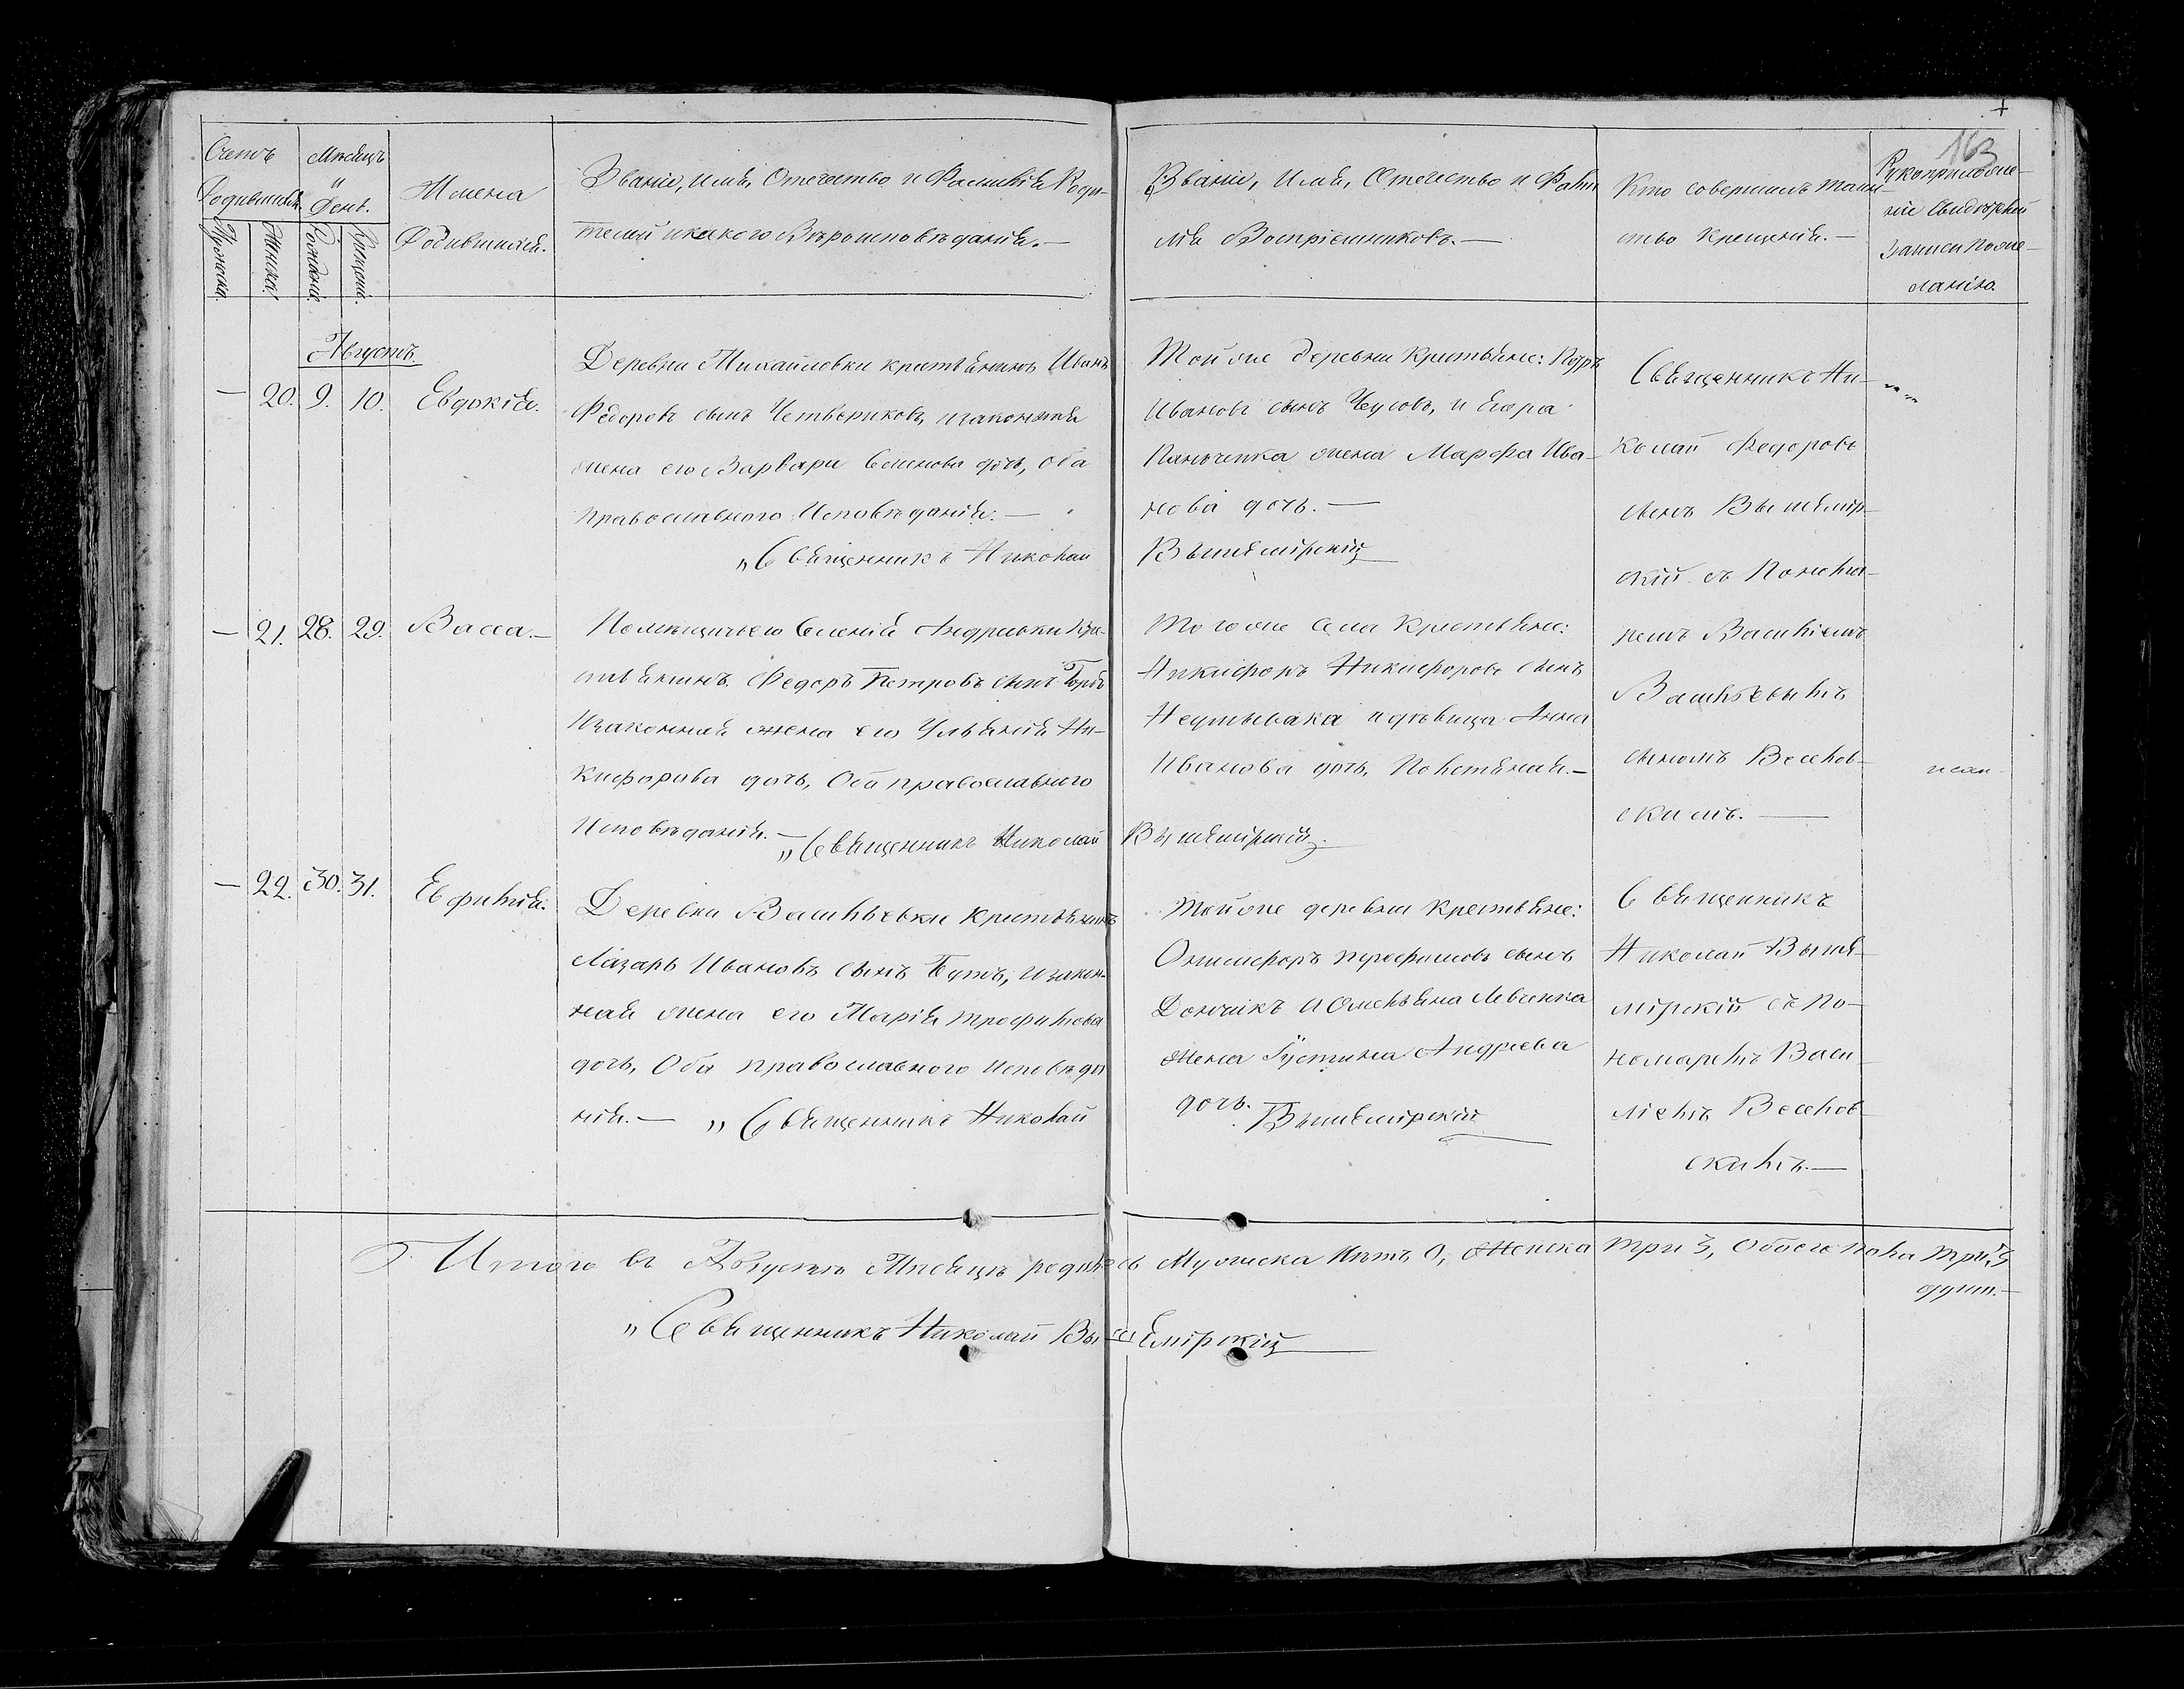 163
Счетъ Родившихся.
Мужеска.
Женска.
Мѣсяцъ и День.
Рожденія.
Крещенія.
Имена
Родившихся.
Званіе, Имя, Отечество и Фамилія Роди-
телей и какого Вѣроисповѣданія.—
Званіе, Имя, Отечество и Фами
лія Воспріемниковъ.—
Кто совершилъ таин
ство Крещенія.—
Рукоприкладств
Записи по же-
ланію.
Августъ
— 20. 9. 10. Евдокія.
Деревни Михайловки крестьянинъ Иванъ
Федоровъ сынъ Четвериковъ, и законная
жена его Варвара Семенова дочь, оба
православного Исповѣданія.—
„Священникъ Николай
Той же деревни крестьяне:
Ивановъ сынъ Чусовъ, и Егора
жена Марфа Ива-
нова дочь.—
Вышемірскій
Священникъ Ни-
колай Федоровъ
сынъ Вышемір-
скій съ Понома-
ремъ Василіемъ
Васильевымъ
сыномъ Весело-
скимъ.—
— 21. 28. 29. Васса.—
Помѣщичьего Селенія Андреевки Кре-
стьянинъ Федоръ Петровъ сынъ
И законная жена его Ульянія Ни-
кифорова дочь, Оба православного
Исповѣданія.—
„Священникъ Николай
Того же Села Крестьяне:
Никифоръ Никифоровъ сынъ
и дѣвица Анна
Иванова дочь,
Вышемірскій.
— 22. 30. 31. Евфимія.
Деревни Васильевки Крестьянинъ
Лазарь Ивановъ сынъ Бутъ, и закон-
ная жена его Марія Трофимова
дочь, Оба православного исповѣда
нія.— „Священникъ Николай
Той же деревни крестьяне:
Онисифоръ Трофимовъ сынъ
Дончикъ и Омельяна Левченка
жена Густина Андреева
дочь.
Вышемірскій
Священникъ
Николай Выше-
мірскій съ По-
номаремъ Васи-
ліемъ Весело-
скимъ.—
Итого въ Августѣ Мѣсяцѣ родилось Мужеска Нѣтъ 0, Женска три 3, Обоего пола три 3
душъ.—
„Священникъ Николай Вышемірскій